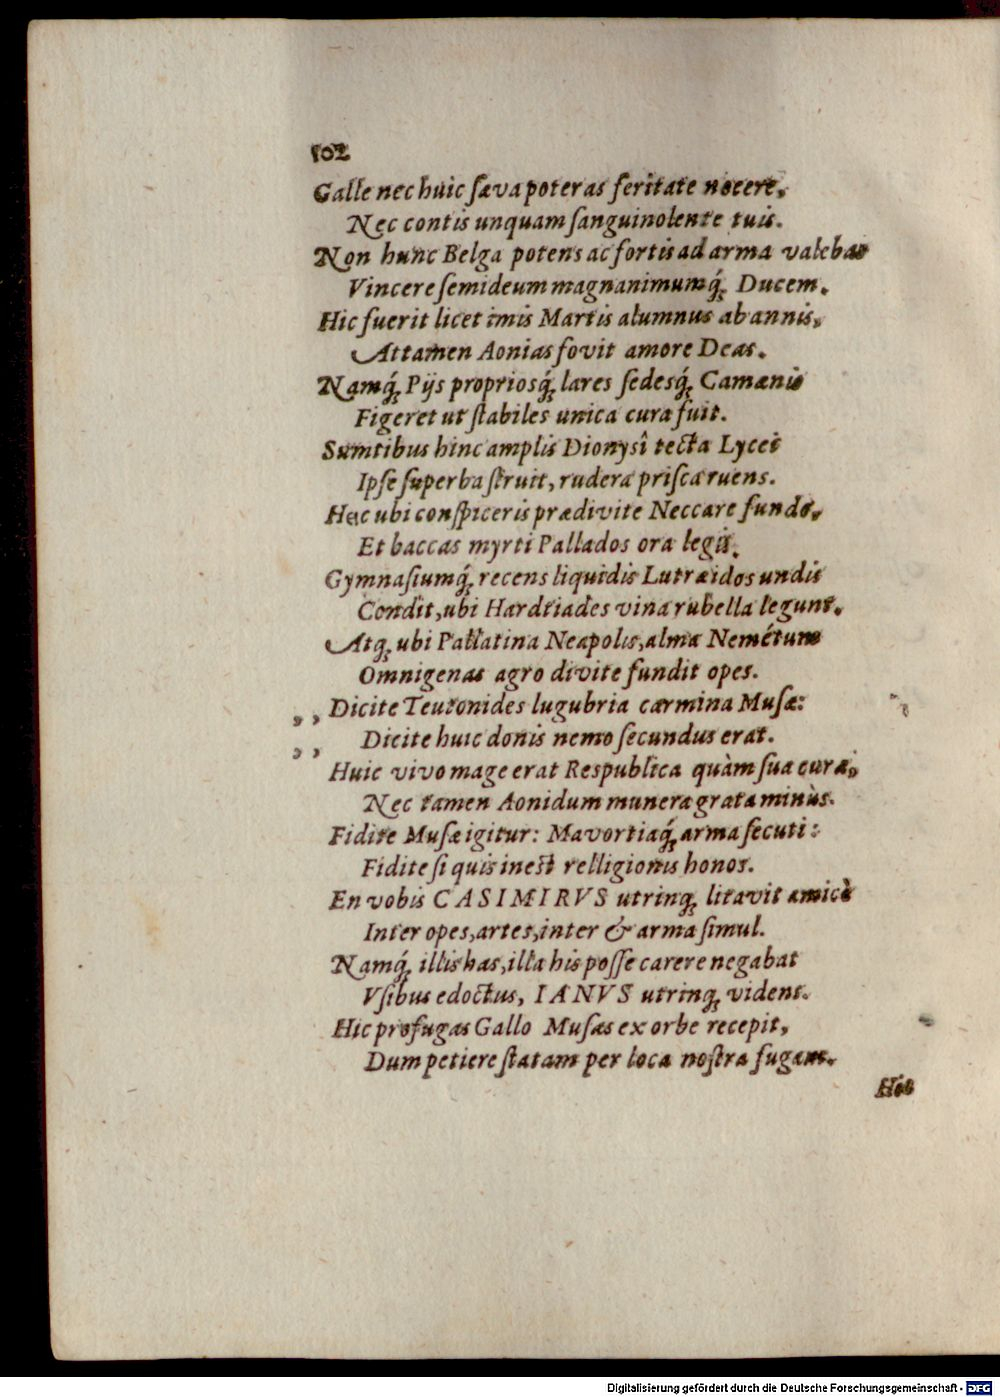 102
Galle nec huic sæva poteras feritate nocere,
Nec contis unquam sanguinolente tuis.
Non hunc Belga potens ac fortis ad arma valebas
Vincere semideum magnanimumq́; Ducem.
Hic fuerit licet imis Martis alumnus ab annis,
Attamen Aonias fovit amore Deas.
Namq́; Pijs propriosq́; lares sedesq́; Camænis
Figeret ut stabiles unica cura fuit.
Sumtibus hinc amplis Dionysî tecta Lycei
Ipse superba struit, rudera prisca ruens.
Hac ubi conspiceris prædivite Neccare fundo,
Et baccas myrti Pallados ora legis.
Gymnasiumq́; recens liquidis Lutræidos undis
Condit, ubi Hardriades vina rubella legunt.
Atq; ubi Pallatina Neapolis, alma Nemétum
Omnigenas agro divite fundit opes.
,, Dicite Teutonides lugubria carmina Musæ:
,, Dicite huic donis nemo secundus erat.
Huic vivo mage erat Respublica quàm sua curæ,
Nec tamen Aonidum munera grata minùs.
Fidite Musæ igitur: Mavortiaq́; arma secuti:
Fidite si quis inest relligionis honos.
En vobis CASIMIRVS utrinq; litavit amicè
Inter opes, artes, inter & arma simul.
Namq́; illis has, illa his posse carere negabat
Vsibus edoctus, IANVS utrinq; videns.
Hic profugas Gallo Musas ex orbe recepit,
Dum petiere statam per loca nostra fugam.
Hos
Digitalisierung gefördert durch die Deutsche Forschungsgemeinschaft - DFG